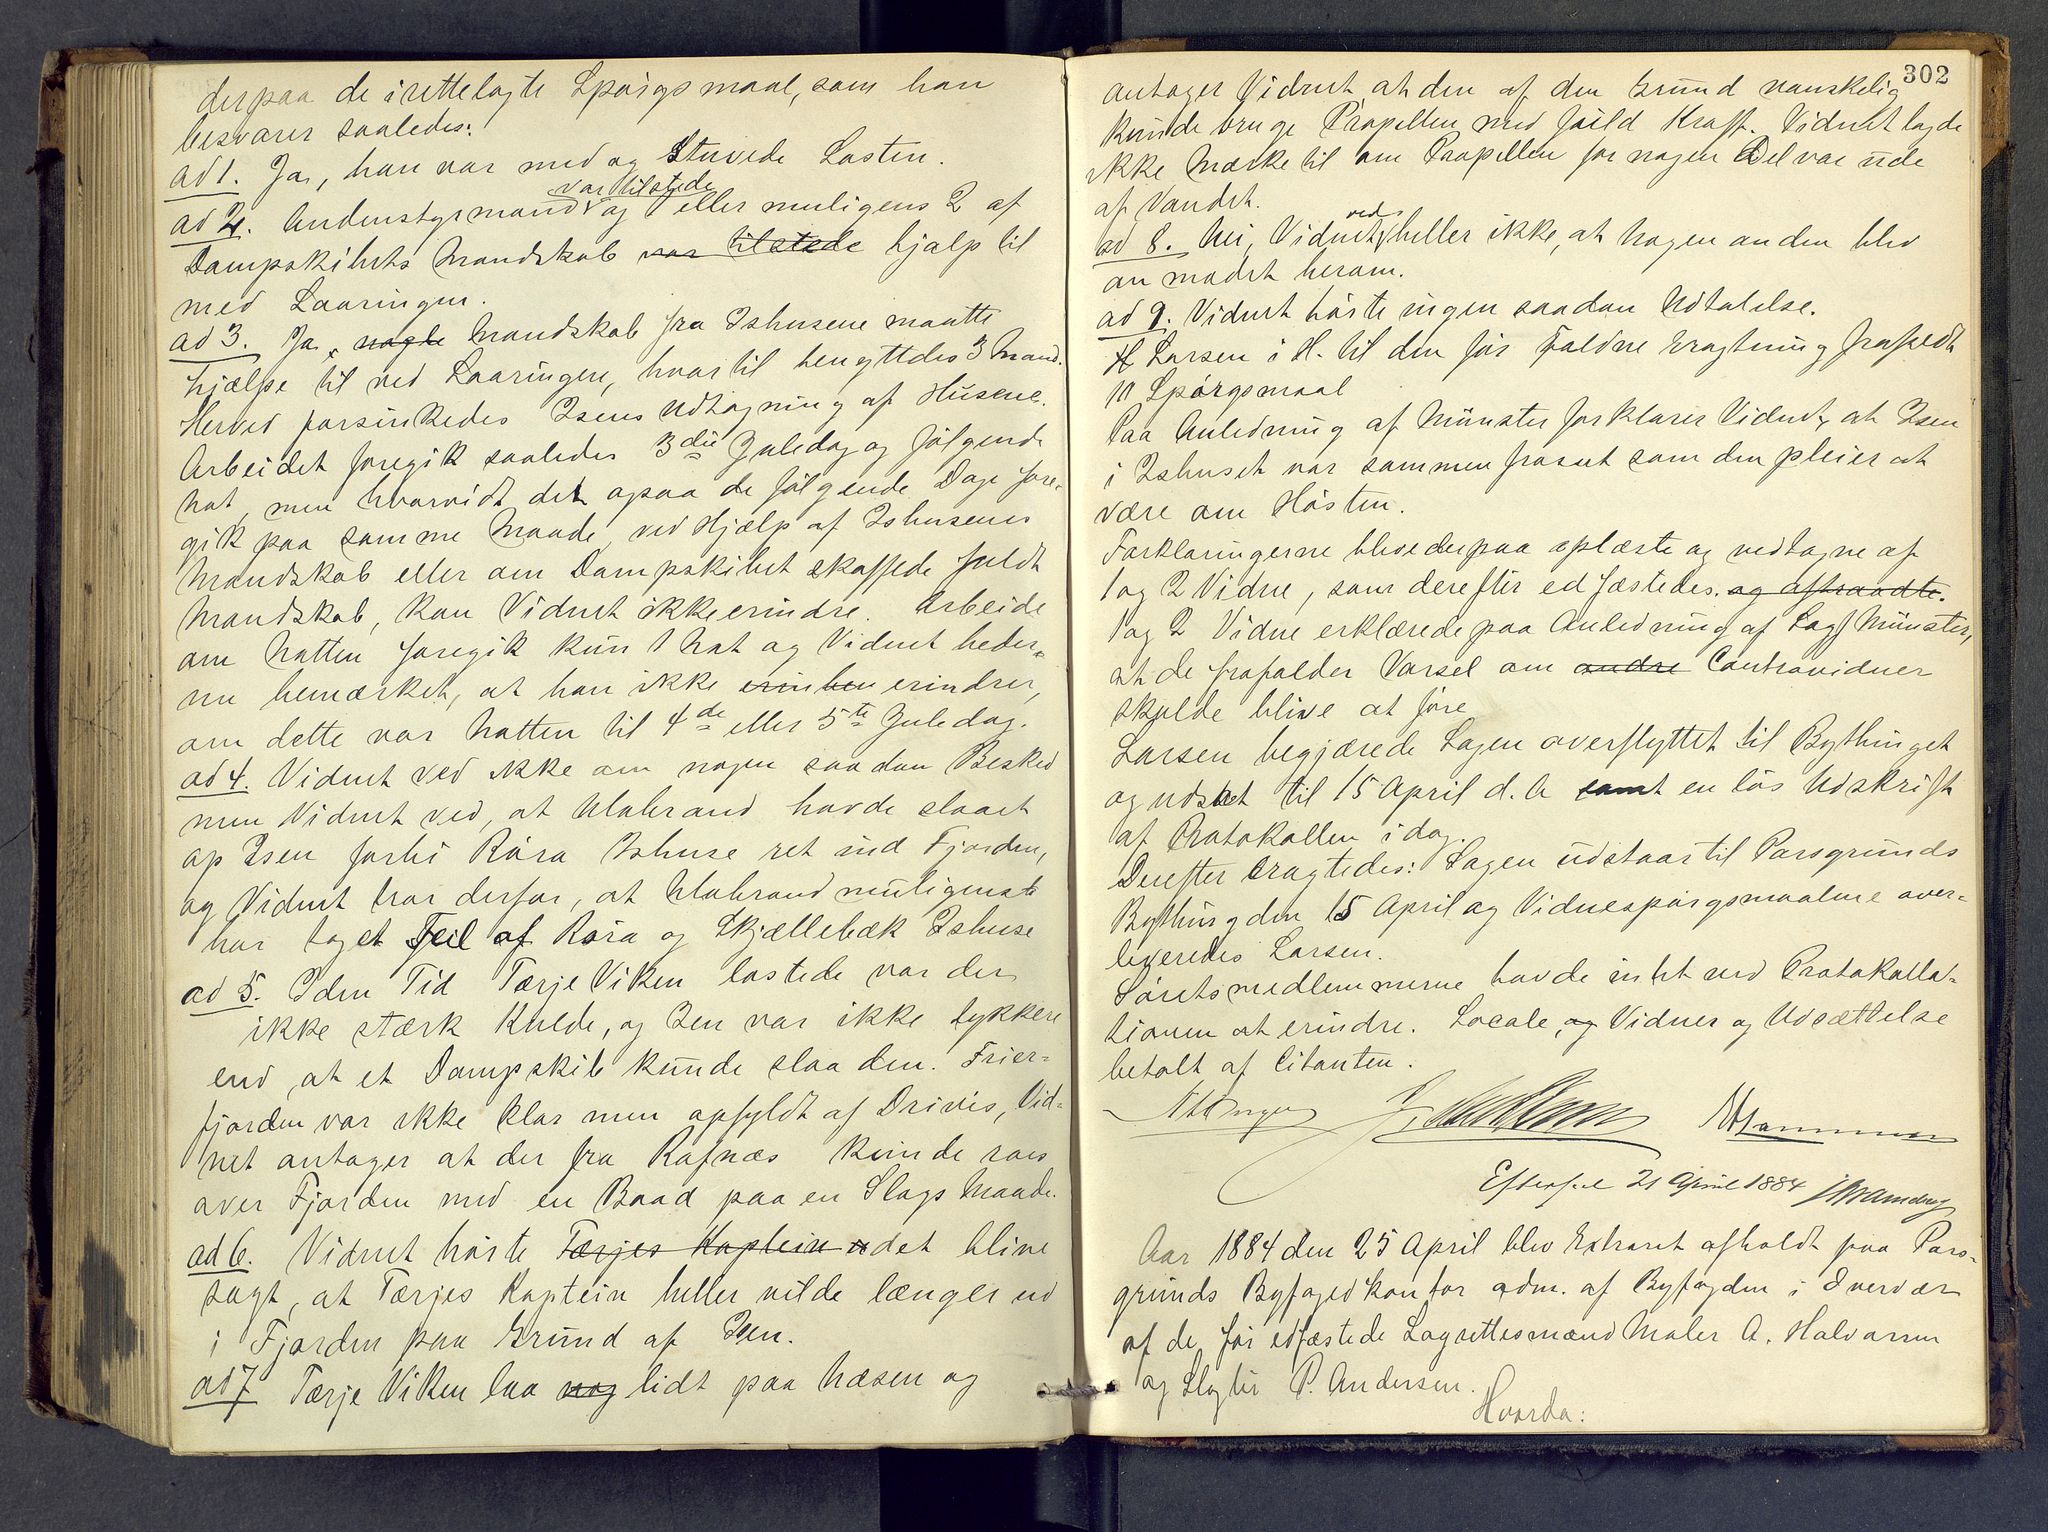 derpaa de irettelagte Spörgsmaal, som han
besvarer saaledes:
ad 1. Ja, han var med og Stuvede Lasten.
var tilstede
ad 2. Andenstyrmand og eller muligens 2 af
Dampskibets Mandskab var tilstede hjalp til
med Laaringen.
ad 3. Ja, nogle Mandskab fra Ishusene maatte
hjælpe til ved Laaringen, hvortil benyttedes 3 Mand.
Herved forsinkedes Isens Udtagning af Husene.
Arbeidet foregik saaledes 3die Juledag og fölgende
Nat, men hvorvidt det ogsaa de fölgende Dage fore-
gik paa samme Maade ved Hjælp af Ishusenes
Mandskab eller om Dampskibet skaffede fuldt
Mandskab, kan Vidnet ikke erindre. Arbeide
om Natten foregik kun 1 Nat og Vidnet heder-
nu bemærket, at han ikke erindrer,
om dette var Natten til 4de eller 5te Juledag.
ad 4. Vidnet ved ikke om nogen saadan Besked
men Vidnet ved, at Ulabrand havde slaaet
op Isen forbi Röra Ishuse ret ind Fjorden,
og Vidnet tror derfor, at Ulabrand muligenst
har taget Feil af Röra og Skjællebæk Ishuse
ad 5. I den Tid Tærje Viken lastede var der
ikke stærk Kulde, og Isen var ikke tykkere
end, at et Dampskib kunde slaa den. Frier-
fjorden var ikke klar men opfyldt af Drivis, Vid-
net antager at der fra Rafnæs kunde roes
over Fjorden med en Baad paa en Slags Maade.
ad 6. Vidnet hörte Tærjes Kaptein det blive
sagt, at Tærjes Kaptein heller vilde længer ud
i Fjorden paa Grund af Isen.
ad 7 Tærje Viken laa nog lidt paa Næsen og
302
antager Vidnet at den af den Grund vanskelig
kunde bruge Propellen med fuld Kraft. Vidnet lagde
ikke Mærke til om Propellen for nogen Del var ude
af Vandet.
ved
ad 8. Nei, Vidnet heller ikke, at Nogen anden blev
anmodet herom.
ad 9. Vidnet hörte ingen saadan Udtalelse.
H Larsen i H. til den för Faldne Eragtning frafaldt
10 Spörgsmaal
Paa Anledning af Münster forklarer Vidnet, at Isen
i Ishuset var sammenfrosset som den pleier at
være om Hösten.
Forklaringerne bleve derpaa oplæste og vedtagne af
1 og 2 Vidne, som derefter edfæstedes. og aftraadte.
1 og 2 Vidne erklærede paa Anledning af Sagf Münster,
at de frafalder Varsel om andre Contravidner
skulde blive at före
Larsen begjærede Sagen overflyttet til Bythinget
og udsat til 15 April d. A samt en lös Udskrift
af Protokollen idag.
Derefter Eragtedes: Sagen udstaar til Porsgrunds
Bything den 15 April og Vidnespörgsmaalene over-
leveredes Larsen.
Söretsmedlemmerne havde intet ved Protokolla-
tionen at erindre. Locale, og Vidner og Udsættelse
betalt af Citanten.
Efterseet 21 April 1884
Aar 1884 den 25 April blev Extraret afholdt paa Pors-
grunds Byfogedkontor adm. af Byfogden i Overvær
af de för edfæstede Lagrettesmænd Maler A. Halvorsen
og Slagter P. Andersen.
Hvorda: